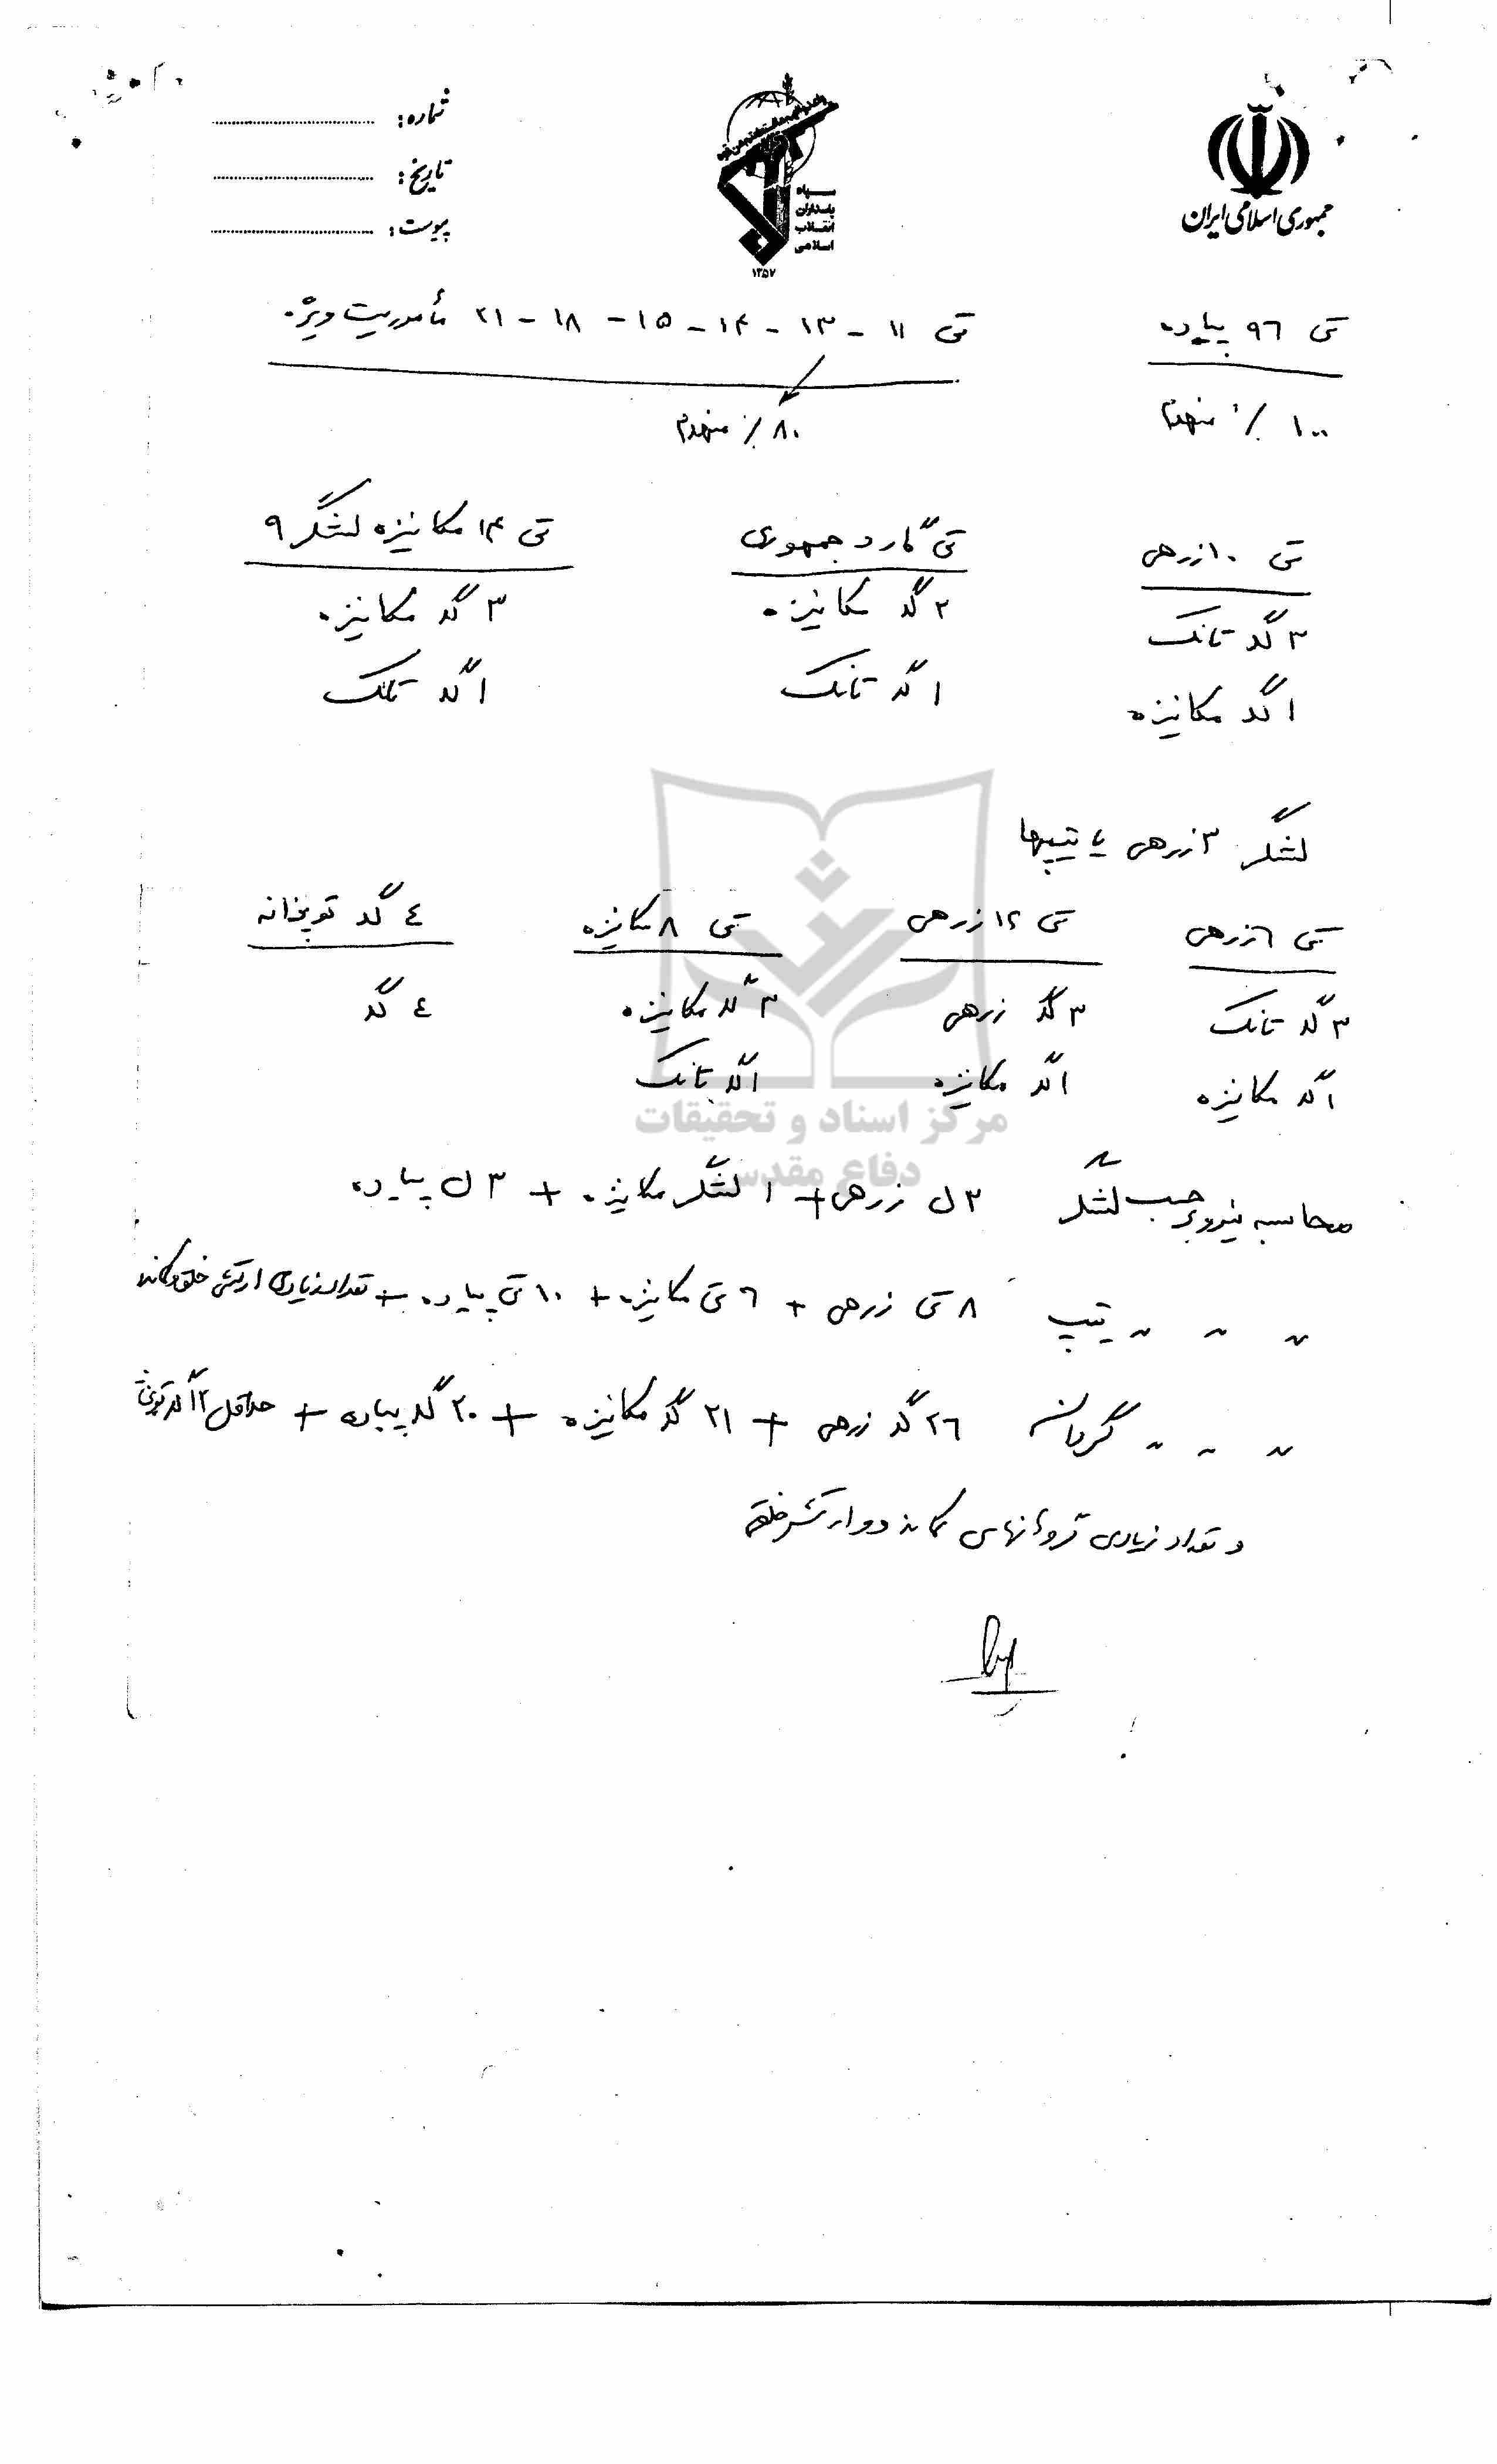 جمهوری اسلامی ایران
سپاه
پاسداران
انقلاب
اسلامی
۱۳۵۷
شماره:
تاریخ:
پیوست:
تی ۹۶ پیاده
تی ۱۱ - ۱۳ - ۱۴ - ۱۵ - ۱۸ - ۲۱ مأموریت ویژه
۱۰۰ ٪ منهدم
۸۰ ٪ منهدم
تی ۱۰ زرهی
تی گارد جمهوری
تی ۱۴ مکانیزه لشگر ۹
۳ گد تانک
۲ گد مکانیزه
۳ گد مکانیزه
۱ گد مکانیزه
۱ گد تانک
۱ گد تانک
لشگر ۳ زرهی با تیپها
تی ۶ زرهی
تی ۱۲ زرهی
تی ۸ مکانیزه
٤ گد توپخانه
۳ گد تانک
۳ گد زرهی
۳ گد مکانیزه
٤ گد
۱ گد مکانیزه
۱ گد مکانیزه
۱ گد تانک
مرکز اسناد و تحقیقات
دفاع مقدس
محاسبه نیرو بر حسب لشگر ۳ ل زرهی + ۱ لشگر مکانیزه + ۳ ل پیاده
〃 〃 〃 تیپ ۸ تی زرهی + ۶ تی مکانیزه + ۱۰ تی پیاده + تعداد زیادی ارتش خلقی و کماندو
〃 〃 〃 گردان ۲۶ گد زرهی + ۲۱ گد مکانیزه + ۳۰ گد پیاده + حداقل ۱۲ گد توپخانه
و تعداد زیادی گروانهای کماندو و ارتش خلقی